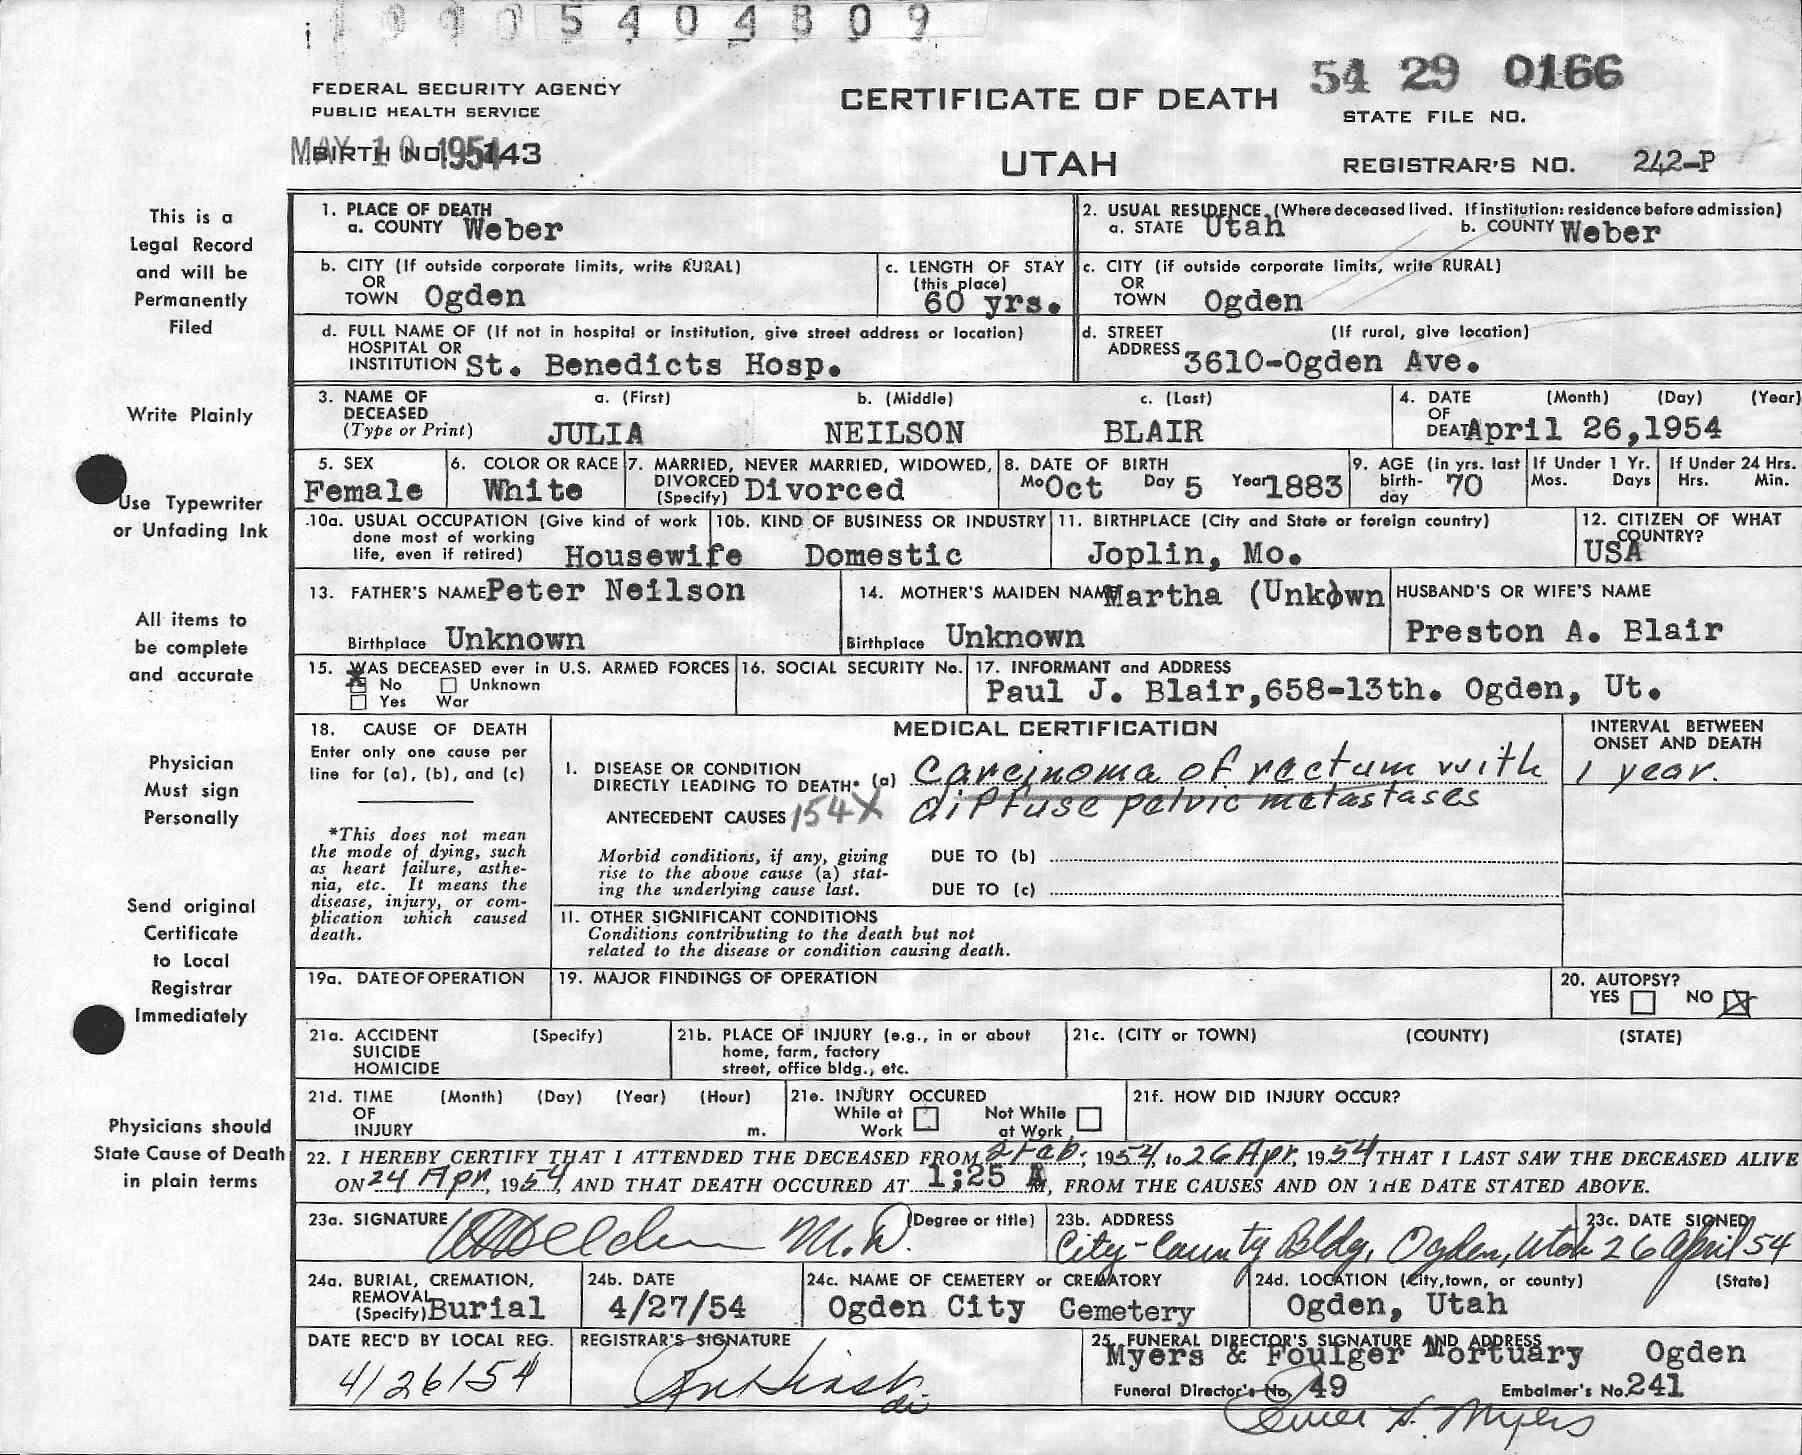 5 4 0 4 8 0 9
FEDERAL SECURITY AGENCY
PUBLIC HEALTH SERVICE
CERTIFICATE OF DEATH
54 29 0166
STATE FILE NO.
MAY 10 1954
BIRTH NO. 143
UTAH
REGISTRAR'S NO. 242-P
This is a
Legal Record
and will be
Permanently
Filed
Write Plainly
Use Typewriter
or Unfading Ink
All items to
be complete
and accurate
Physician
Must sign
Personally
Send original
Certificate
to Local
Registrar
Immediately
Physicians should
State Cause of Death
in plain terms
1. PLACE OF DEATH
a. COUNTY Weber
2. USUAL RESIDENCE (Where deceased lived. If institution: residence before admission)
a. STATE Utah b. COUNTY Weber
b. CITY (If outside corporate limits, write RURAL)
OR
TOWN Ogden
c. LENGTH OF STAY
(this place)
60 yrs.
c. CITY (if outside corporate limits, write RURAL)
OR
TOWN Ogden
d. FULL NAME OF (If not in hospital or institution, give street address or location)
HOSPITAL OR
INSTITUTION St. Benedicts Hosp.
d. STREET (If rural, give location)
ADDRESS 3610-Ogden Ave.
3. NAME OF a. (First) b. (Middle) c. (Last)
DECEASED
(Type or Print) JULIA NEILSON BLAIR
4. DATE (Month) (Day) (Year)
OF
DEATH April 26,1954
5. SEX
Female
6. COLOR OR RACE
White
7. MARRIED, NEVER MARRIED, WIDOWED,
DIVORCED
(Specify) Divorced
8. DATE OF BIRTH
Mo Oct Day 5 Year 1883
9. AGE (in yrs. last
birth-
day 70
If Under 1 Yr.
Mos. Days
If Under 24 Hrs.
Hrs. Min.
10a. USUAL OCCUPATION (Give kind of work
done most of working
life, even if retired) Housewife
10b. KIND OF BUSINESS OR INDUSTRY
Domestic
11. BIRTHPLACE (City and State or foreign country)
Joplin, Mo.
12. CITIZEN OF WHAT
COUNTRY?
USA
13. FATHER'S NAME Peter Neilson
Birthplace Unknown
14. MOTHER'S MAIDEN NAME Martha (Unkown
Birthplace Unknown
HUSBAND'S OR WIFE'S NAME
Preston A. Blair
15. WAS DECEASED ever in U.S. ARMED FORCES
No Unknown
Yes War
16. SOCIAL SECURITY No.
17. INFORMANT and ADDRESS
Paul J. Blair,658-13th. Ogden, Ut.
18. CAUSE OF DEATH
Enter only one cause per
line for (a), (b), and (c)
*This does not mean
the mode of dying, such
as heart failure, asthe-
nia, etc. It means the
disease, injury, or com-
plication which caused
death.
MEDICAL CERTIFICATION
I. DISEASE OR CONDITION
DIRECTLY LEADING TO DEATH* (a) Carcinoma of rectum with
diffuse pelvic metastases
ANTECEDENT CAUSES 154X
Morbid conditions, if any, giving
rise to the above cause (a) stat-
ing the underlying cause last.
DUE TO (b)
DUE TO (c)
II. OTHER SIGNIFICANT CONDITIONS
Conditions contributing to the death but not
related to the disease or condition causing death.
INTERVAL BETWEEN
ONSET AND DEATH
1 year.
19a. DATE OF OPERATION
19. MAJOR FINDINGS OF OPERATION
20. AUTOPSY?
YES NO X
21a. ACCIDENT (Specify)
SUICIDE
HOMICIDE
21b. PLACE OF INJURY (e.g., in or about
home, farm, factory
street, office bldg., etc.
21c. (CITY or TOWN) (COUNTY) (STATE)
21d. TIME (Month) (Day) (Year) (Hour)
OF
INJURY m.
21e. INJURY OCCURED
While at Work Not While at Work
21f. HOW DID INJURY OCCUR?
22. I HEREBY CERTIFY THAT I ATTENDED THE DECEASED FROM 2 Feb, 1954, to 26 Apr, 1954 THAT I LAST SAW THE DECEASED ALIVE
ON 24 Apr, 1954, AND THAT DEATH OCCURED AT 1:25 A M, FROM THE CAUSES AND ON THE DATE STATED ABOVE.
23a. SIGNATURE M.D. (Degree or title)
23b. ADDRESS
City-County Bldg, Ogden, Utah
23c. DATE SIGNED
26 April 54
24a. BURIAL, CREMATION,
REMOVAL
(Specify) Burial
24b. DATE
4/27/54
24c. NAME OF CEMETERY or CREMATORY
Ogden City Cemetery
24d. LOCATION (City, town, or county) (State)
Ogden, Utah
DATE REC'D BY LOCAL REG.
4/26/54
REGISTRAR'S SIGNATURE
25. FUNERAL DIRECTOR'S SIGNATURE AND ADDRESS
Myers & Foulger Mortuary Ogden
Funeral Director's No. 49 Embalmer's No. 241
Myers